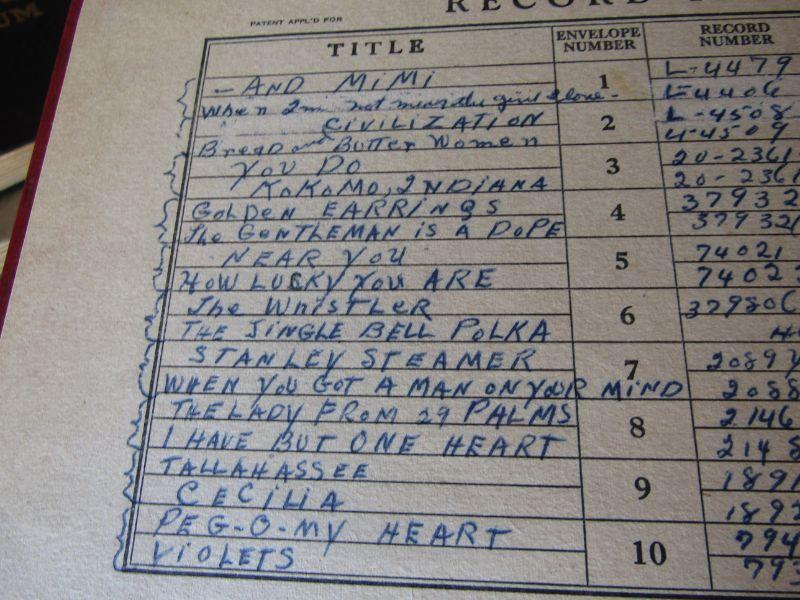 RECORD
PATENT APPL'D FOR
TITLE ENVELOPE NUMBER RECORD NUMBER
- AND MIMI 1 L-4479
When I'm not near the girl I love - L-4406
CIVILIZATION 2 L-4508
Bread and Butter Women 4-4509
YOU DO 3 20-2361
KOKOMO, INDIANA 20-2361
GOLDEN EARRINGS 4 37932
The GENTLEMAN IS A DOPE 37932
NEAR YOU 5 74021
HOW LUCKY YOU ARE 7402
The WHISTLER 6 37980
THE JINGLE BELL POLKA
STANLEY STEAMER 7 2089
WHEN YOU GOT A MAN ON YOUR MIND 2088
THE LADY FROM 29 PALMS 8 2146
I HAVE BUT ONE HEART 2148
TALLAHASSEE 9 1891
CECILIA 189
PEG-O-MY HEART 10 794
VIOLETS 793